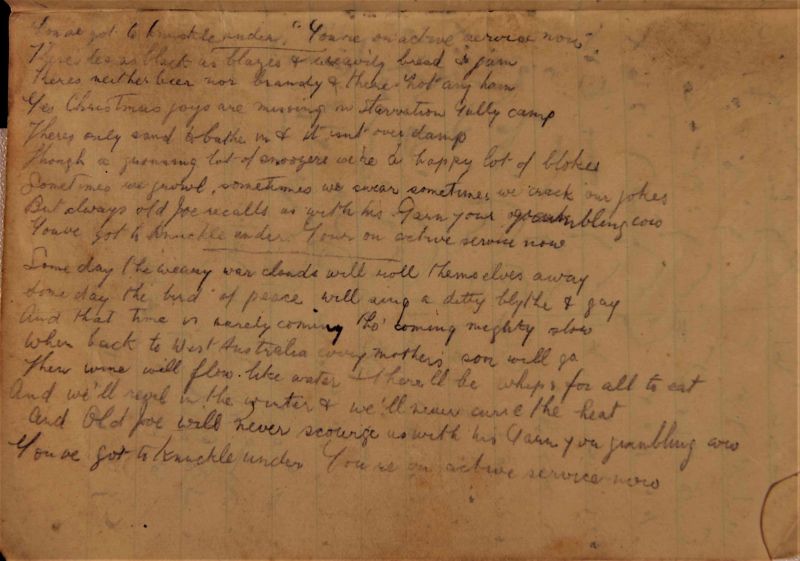 You've got to knuckle under, "You're on active service now".
Theres tea as black as blazes & weavily bread & jam
Theres neither beer nor brandy & there not any ham
Yes Christmas joys are missing in Starvation Gully camp
Theres only sand to bathe in & it isnt over damp
Though a groaning lot of snoozers we're a happy lot of blokes
Sometimes we growl, sometimes we swear sometimes we crack our jokes
But always old Joe recalls us with his Garn your grumbling cow
Youve got to knuckle under. Your on active service now
Some day the weary war clouds will roll themselves away
Some day the bird of peace will sing a ditty blythe & gay
And that time is surely coming tho' coming mighty slow
When back to West Australia every mothers son will go
Then wine will flow like water & there'll be whips for all to eat
And we'll revel in the winter & we'll never curse the heat
And Old Joe will never scourge us with his Garn you grumbling cow
Youve got to knuckle under You're on active service now